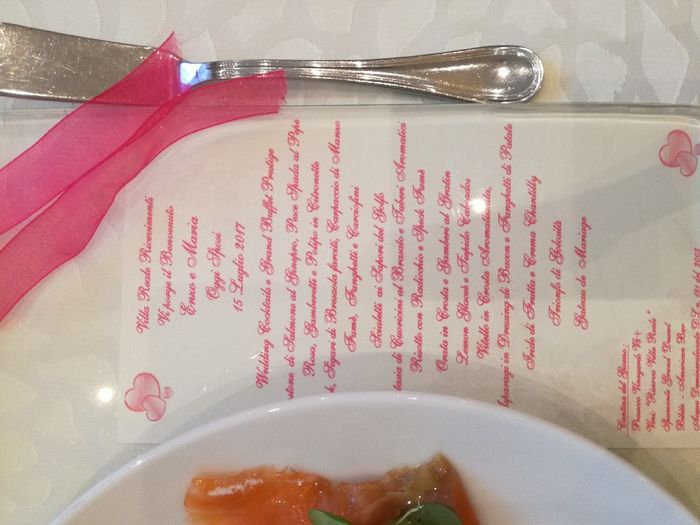 Villa Reale Ricevimenti
Vi porge il Benvenuto
Enzo e Maria
Oggi Sposi
15 Luglio 2017
Wedding Cocktails e Grand Buffet Prestige
di Salmone al Ginepro, Pesce Spada al Pepe
Rosa, Gamberetti e Polipo in Citronette
Sapori di Brusada farciti, Carpaccio di Manzo
Fumè, Funghetti e Carciofini
Sciudetti ai Sapori del Golfo
di Cavaticcai al Bronzato e Tuberi Aromatici
Risotto con Radicchio e Speck Fumè
Orata in Crosta e Gamberi al Gratin
Lemon Glacés e Tiepido Calvados
Vitello in Crosta Aromatica,
Asparagi in Dressing di Bacon e Funghetti di Patate
Iride di Frutta e Crema Chantilly
Trionfo di Golosità
Gateau de Mariage
Cantina del Giorno:
Prosecco Vineyards V8+
Vini "Riserva Villa Reale"
Spumante Grand Dessert
Bibite - American Bar